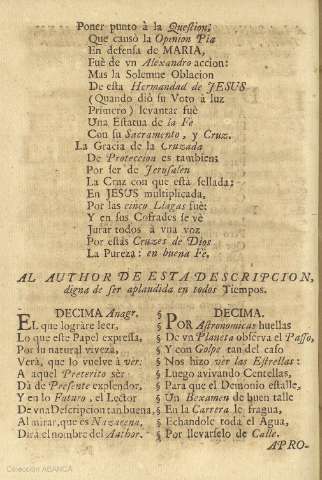 Poner punto à la Question,
Que causò la Opinion Pia
En defensa de MARIA,
Fuè de vn Alexandro accion:
Mas la Solemne Oblacion
De esta Hermandad de JESUS
(Quando diò su Voto a luz
Primero) levantar fuè
Una Estatua de la Fè
Con su Sacramento, y Cruz.
La Gracia de la Cruzada
De Proteccion es tambien:
Por ser de Jerusalen
La Cruz con que està sellada:
En JESUS multiplicada,
Por las cinco Llagas fuè:
Y en sus Cofrades se vè
Jurar todos à vna voz
Por estas Cruzes de Dios
La Pureza: en buena Fè.
AL AUTHOR DE ESTA DESCRIPCION,
digna de ser aplaudida en todos Tiempos.
DECIMA Anagr.
EL que lograre leer,
Lo que este Papel expressa,
Por su natural viveza,
Verà, que lo vuelve à ver:
A aquel Preterito ser
Dà de Presente explendor,
Y en lo Futuro, el Lector
De vna Descripcion tan buena,
Al mirar, que es Nazarena,
Dirà el nombre del Author.
DECIMA.
POR Astronomicas huellas
De vn Planeta observa el Passo,
Y con Golpe tan del caso
Nos hizo ver las Estrellas:
Luego avivando Centellas,
Para que el Demonio estalle,
Un Bexamen de buen talle
En la Carrera le fragua,
Echandole toda el Agua,
Por llevarselo de Calle.
APRO-
Colección ABANCA